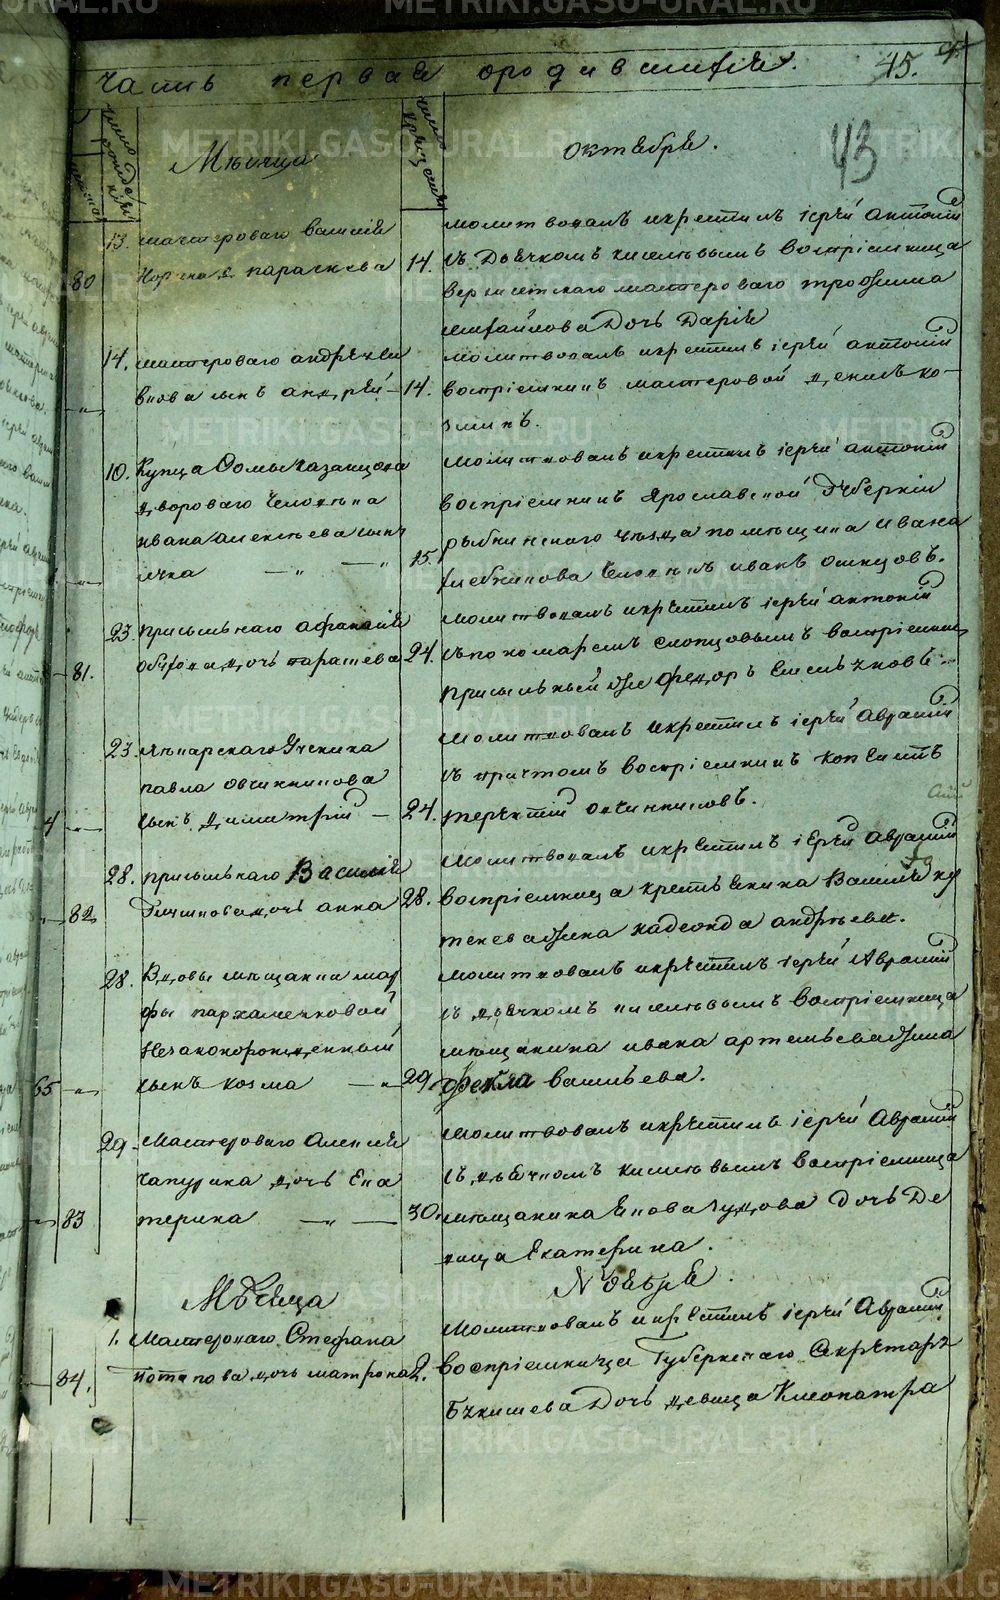 часть первая ородившихся.
45.
43
Мѣсяца
октебре.
число рожденія
число крещенія
13. мастероваго василія
80
параскева
14.
молитвовалъ икрестилъ іерей антоній
съ дьячкомъ киселевымъ воспріемница
верхисетскаго мастероваго трофима
михайлова дочь дарія
14. мастероваго андрея
сынъ андрей
14.
молитвовалъ икрестилъ іерей антоній
воспріемникъ мастеровой данилъ ко-
зминъ.
10. купца Фомы казанцова
двороваго человека
ивана алексеева сынъ
лука
15.
молитвовалъ икрестилъ іерей антоній
воспріемникъ ярославской губерніи
рыбинскаго уезда помещика ивана
человекъ иванъ
23. присыльнаго афанасія
81.
дочь парасева
24.
молитвовалъ икрестилъ іерей антоній
съпономаремъ слопцовымъ воспріемник
присыльный федоръ емельяновъ.
23. лекарскаго ученика
павла овчинникова
сынъ димитрій
24.
молитвовалъ икрестилъ іерей Авраамій
съ причтомъ воспріемникъ копеистъ
терентій овчинниковъ.
28. присыльнаго Василія
82
дочь анна
28.
молитвовалъ икрестилъ іерей Авраамій
воспріемница крестьянина Василья ку
надеожда андреева.
28. вдовы мещанки мар
фы пархаменковой
незаконорожденный
65
сынъ козма
29.
молитвовалъ икрестилъ іерей Авраамій
съ дьячкомъ киселевымъ воспріемница
мещанина ивана артемьева жена
фекла васильева.
29. Мастероваго Алексея
чапурина дочь Ека
83
терина
30.
молитвовалъ икрестилъ іерей Авраамій
съ дьячкомъ киселевымъ воспріемница
мещанина дочь Де
вица Екатерина.
Мѣсяца
Ноебре.
1. Мастероваго Стефана
84.
потапова дочь матрона
2.
молитвовалъ икрестилъ іерей Авраамій
воспріемница Губернскаго Секретаря
дочь девица Клеопатра
METRIKI.GASO-URAL.RU